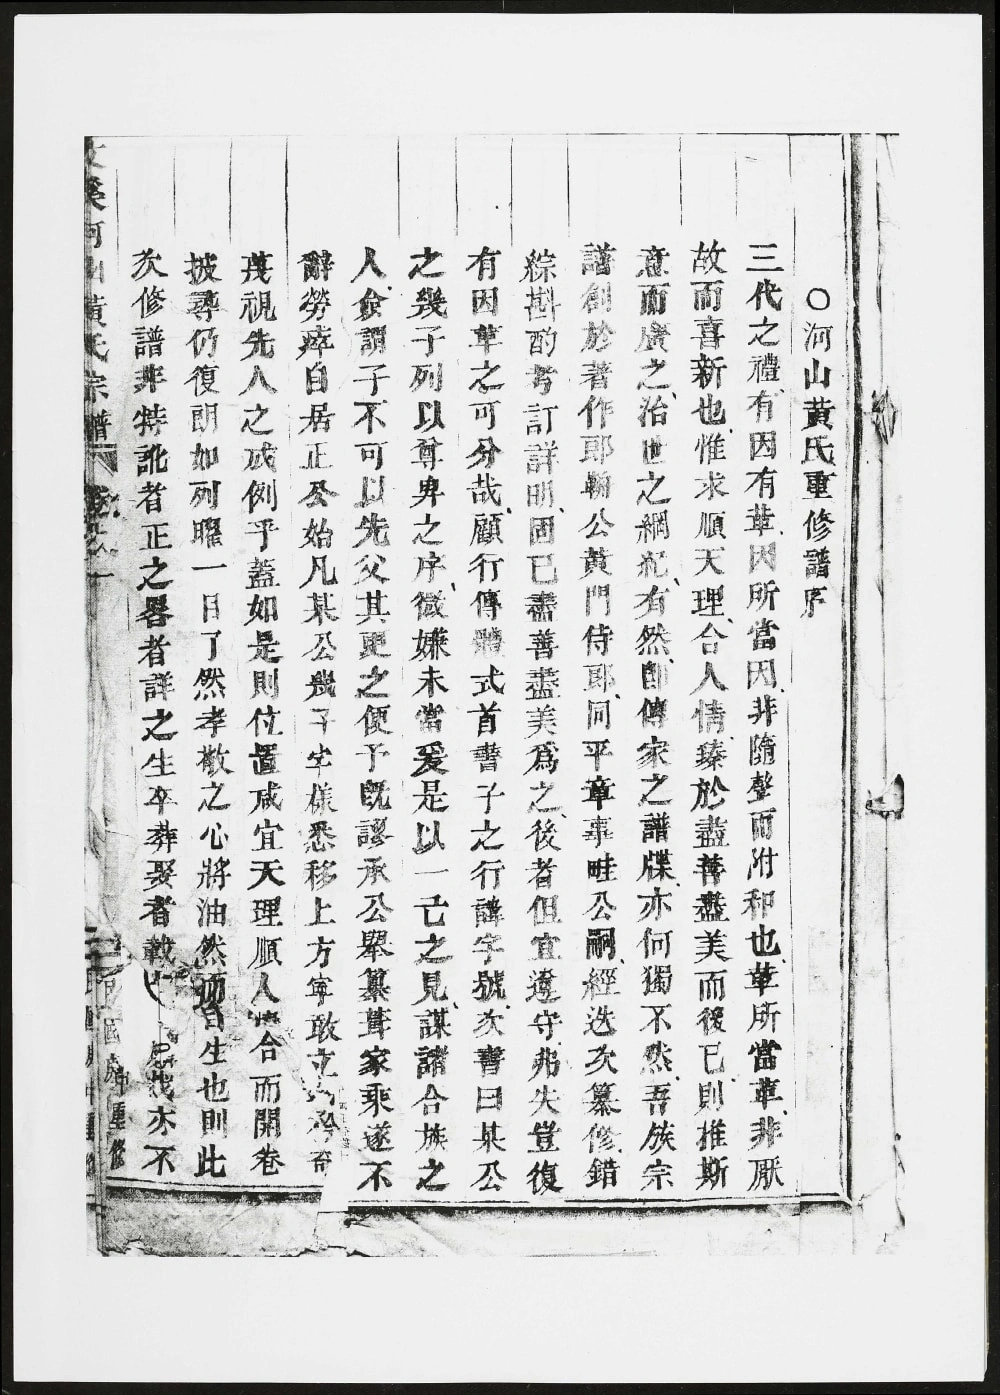 〇河山黃氏重修譜序
三代之禮有因有革因所當因非隨聲而附和也革所當革非厭
故而喜新也惟求順天理合人情臻於盡善盡美而後已則推斯
意而廣之治世之綱紀有然卽傳家之譜牒亦何獨不然吾族宗
譜創於著作郎翰公黃門侍郎同平章事畦公嗣經迭次纂修錯
綜斟酌考訂詳明固已盡善盡美爲之後者但宜遵守弗失豈復
有因革之可分哉顧行傳體式首書子之行諱字號次書曰某公
之幾子列以尊卑之序微嫌未當爰是以一己之見謀諸合族之
人僉謂子不可以先父其更之便予旣謬承公舉纂葺家乘遂不
辭勞瘁自居正公始凡某公幾子字樣悉移上方寧敢立矜奇
蔑視先人之成例乎蓋如是則位置咸宜天理順人情合而開卷
披尋仍復朗如列曜一日了然孝敬之心將油然而自生也則此
次修譜非特訛者正之畧者詳之生卒葬娶者載亦不
河山黃氏宗譜 重修